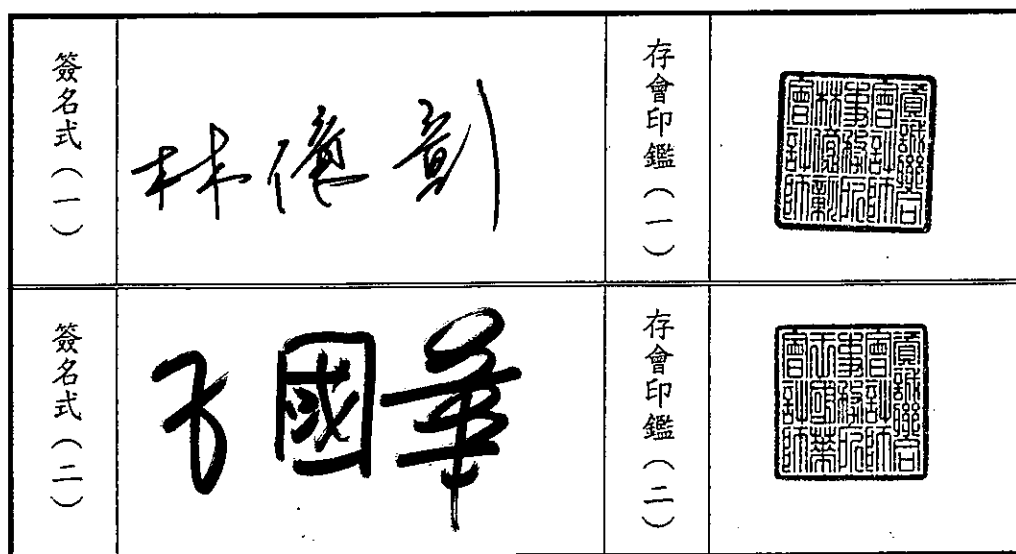 簽名式（一）
林億彰
存會印鑑（一）
資誠聯合
會計師
事務所
林億彰
會計師
簽名式（二）
王國華
存會印鑑（二）
資誠聯合
會計師
事務所
王國華
會計師